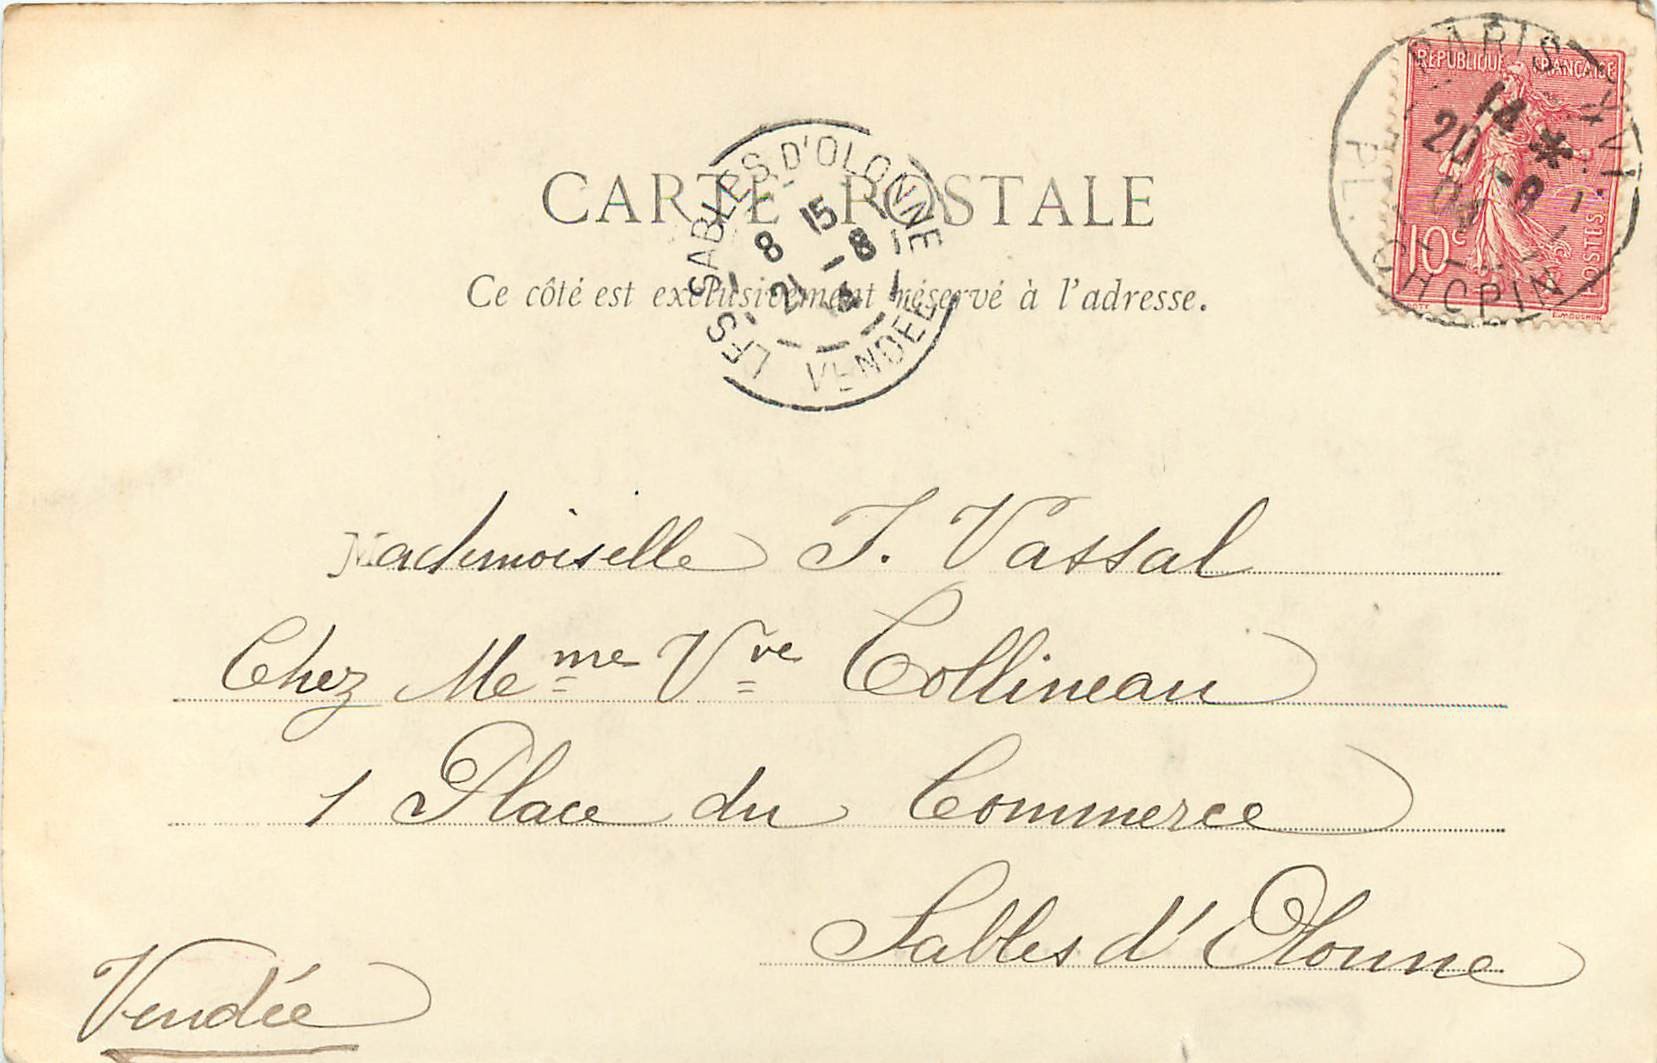 RÉPUBLIQUE FRANÇAISE
10c
POSTES
E. MOUCHON
PARIS XVI
14 *
20 -8
04
PL. CHOPIN
CARTE POSTALE
Ce côté est exclusivement réservé à l'adresse.
LES SABLES D'OLONNE
8 15
21 -8
VENDEE
Mademoiselle J. Vassal
Chez Mme Vve Collineau
1 Place du Commerce
Sables d'Olonne
Vendée